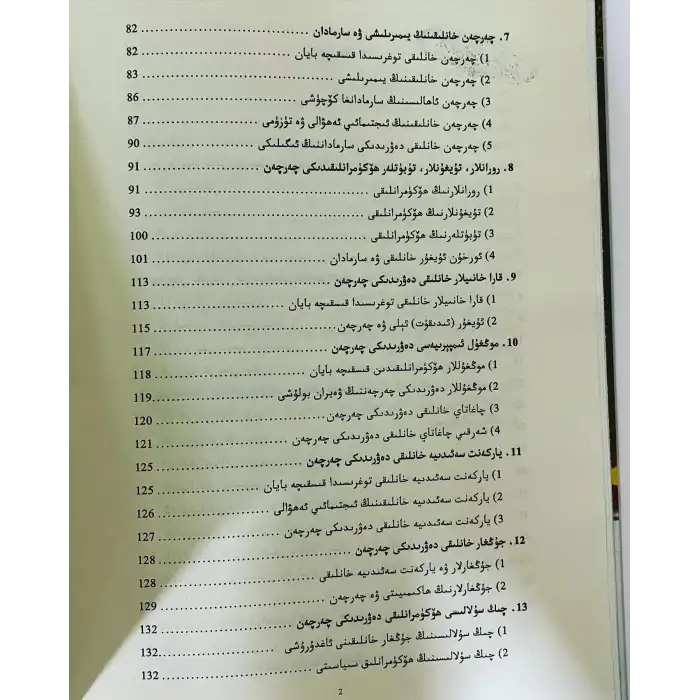 7. چەرچەن خانلىقىنىڭ يىمىرىلىشى ۋە سارمادان ........ 82
1) چەرچەن خانلىقى توغرىسىدا قىسقىچە بايان ........ 82
2) چەرچەن خانلىقىنىڭ يىمىرىلىشى ........ 83
3) چەرچەن ئاھالىسىنىڭ سارمادانغا كۆچۈشى ........ 86
4) چەرچەن خانلىقىنىڭ ئىجتىمائىي ئەھۋالى ۋە تۈزۈمى ........ 87
5) چەرچەن خانلىقى دەۋرىدىكى سارماداننىڭ ئىگىلىكى ........ 90
8. رورانلار، تۇيغۇنلار، تۈبۈتلەر ھۆكۈمرانلىقىدىكى چەرچەن ........ 91
1) رورانلارنىڭ ھۆكۈمرانلىقى ........ 91
2) تۇيغۇنلارنىڭ ھۆكۈمرانلىقى ........ 93
3) تۈبۈتلەرنىڭ ھۆكۈمرانلىقى ........ 100
4) ئورخۇن ئۇيغۇر خانلىقى ۋە سارمادان ........ 101
9. قارا خانىيلار خانلىقى دەۋرىدىكى چەرچەن ........ 113
1) قارا خانىيلار خانلىقى توغرىسىدا قىسقىچە بايان ........ 113
2) ئۇيغۇر (ئىدىقۇت) ئېلى ۋە چەرچەن ........ 115
10. موڭغۇل ئىمپېرىيەسى دەۋرىدىكى چەرچەن ........ 117
1) موڭغۇللار ھۆكۈمرانلىقىدىن قىسقىچە بايان ........ 118
2) موڭغۇللار دەۋرىدىكى چەرچەننىڭ ۋەيران بولۇشى ........ 119
3) چاغاتاي خانلىقى دەۋرىدىكى چەرچەن ........ 120
4) شەرقىي چاغاتاي خانلىقى دەۋرىدىكى چەرچەن ........ 121
11. ياركەنت سەئىدىيە خانلىقى دەۋرىدىكى چەرچەن ........ 125
1) ياركەنت سەئىدىيە خانلىقى توغرىسىدا قىسقىچە بايان ........ 125
2) ياركەنت سەئىدىيە خانلىقىنىڭ ئىجتىمائىي ئەھۋالى ........ 126
3) ياركەنت سەئىدىيە خانلىقى دەۋرىدىكى چەرچەن ........ 127
12. جۇڭغار خانلىقى دەۋرىدىكى چەرچەن ........ 128
1) جۇڭغارلار ۋە ياركەنت سەئىدىيە خانلىقى ........ 128
2) جۇڭغارلارنىڭ ھاكىمىيىتى ۋە چەرچەن ........ 129
13. چىڭ سۇلالىسى ھۆكۈمرانلىقى دەۋرىدىكى چەرچەن ........ 132
1) چىڭ سۇلالىسىنىڭ جۇڭغار خانلىقىنى ئاغدۇرۇشى ........ 132
2) چىڭ سۇلالىسىنىڭ ھۆكۈمرانلىق سىياسىتى ........ 132
2